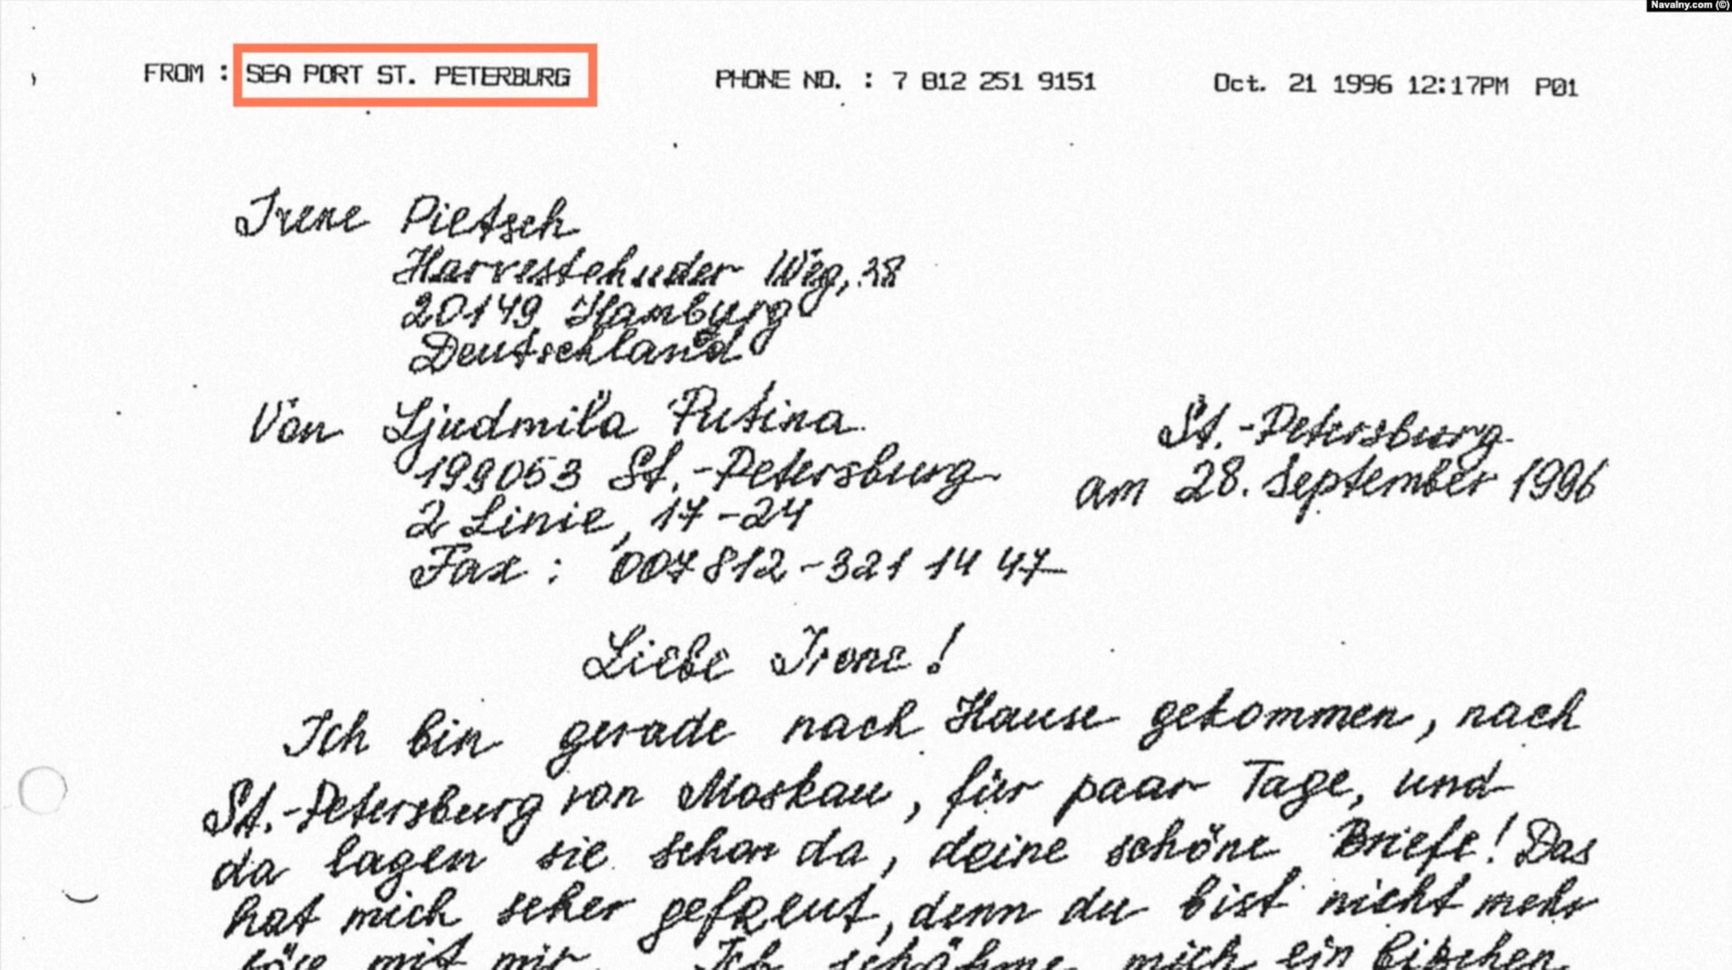 Navalny.com (©)
FROM : SEA PORT ST. PETERBURG PHONE NO. : 7 812 251 9151 Oct. 21 1996 12:17PM P01
Irene Pietsch
Harvestehuder Weg, 28
20149 Hamburg
Deutschland
Von Ljudmila Putina
199053 St.-Petersburg
2 Linie, 17-24
Fax : 007 812-321 14 47
St.-Petersburg
am 28. September 1996
Liebe Irene!
Ich bin gerade nach Hause gekommen, nach
St.-Petersburg von Moskau, für paar Tage, und
da lagen sie schon da, deine schöne Briefe! Das
hat mich seher gefreut, denn du bist nicht mehr
böse mit mir. Ich schähme mich ein bißchen